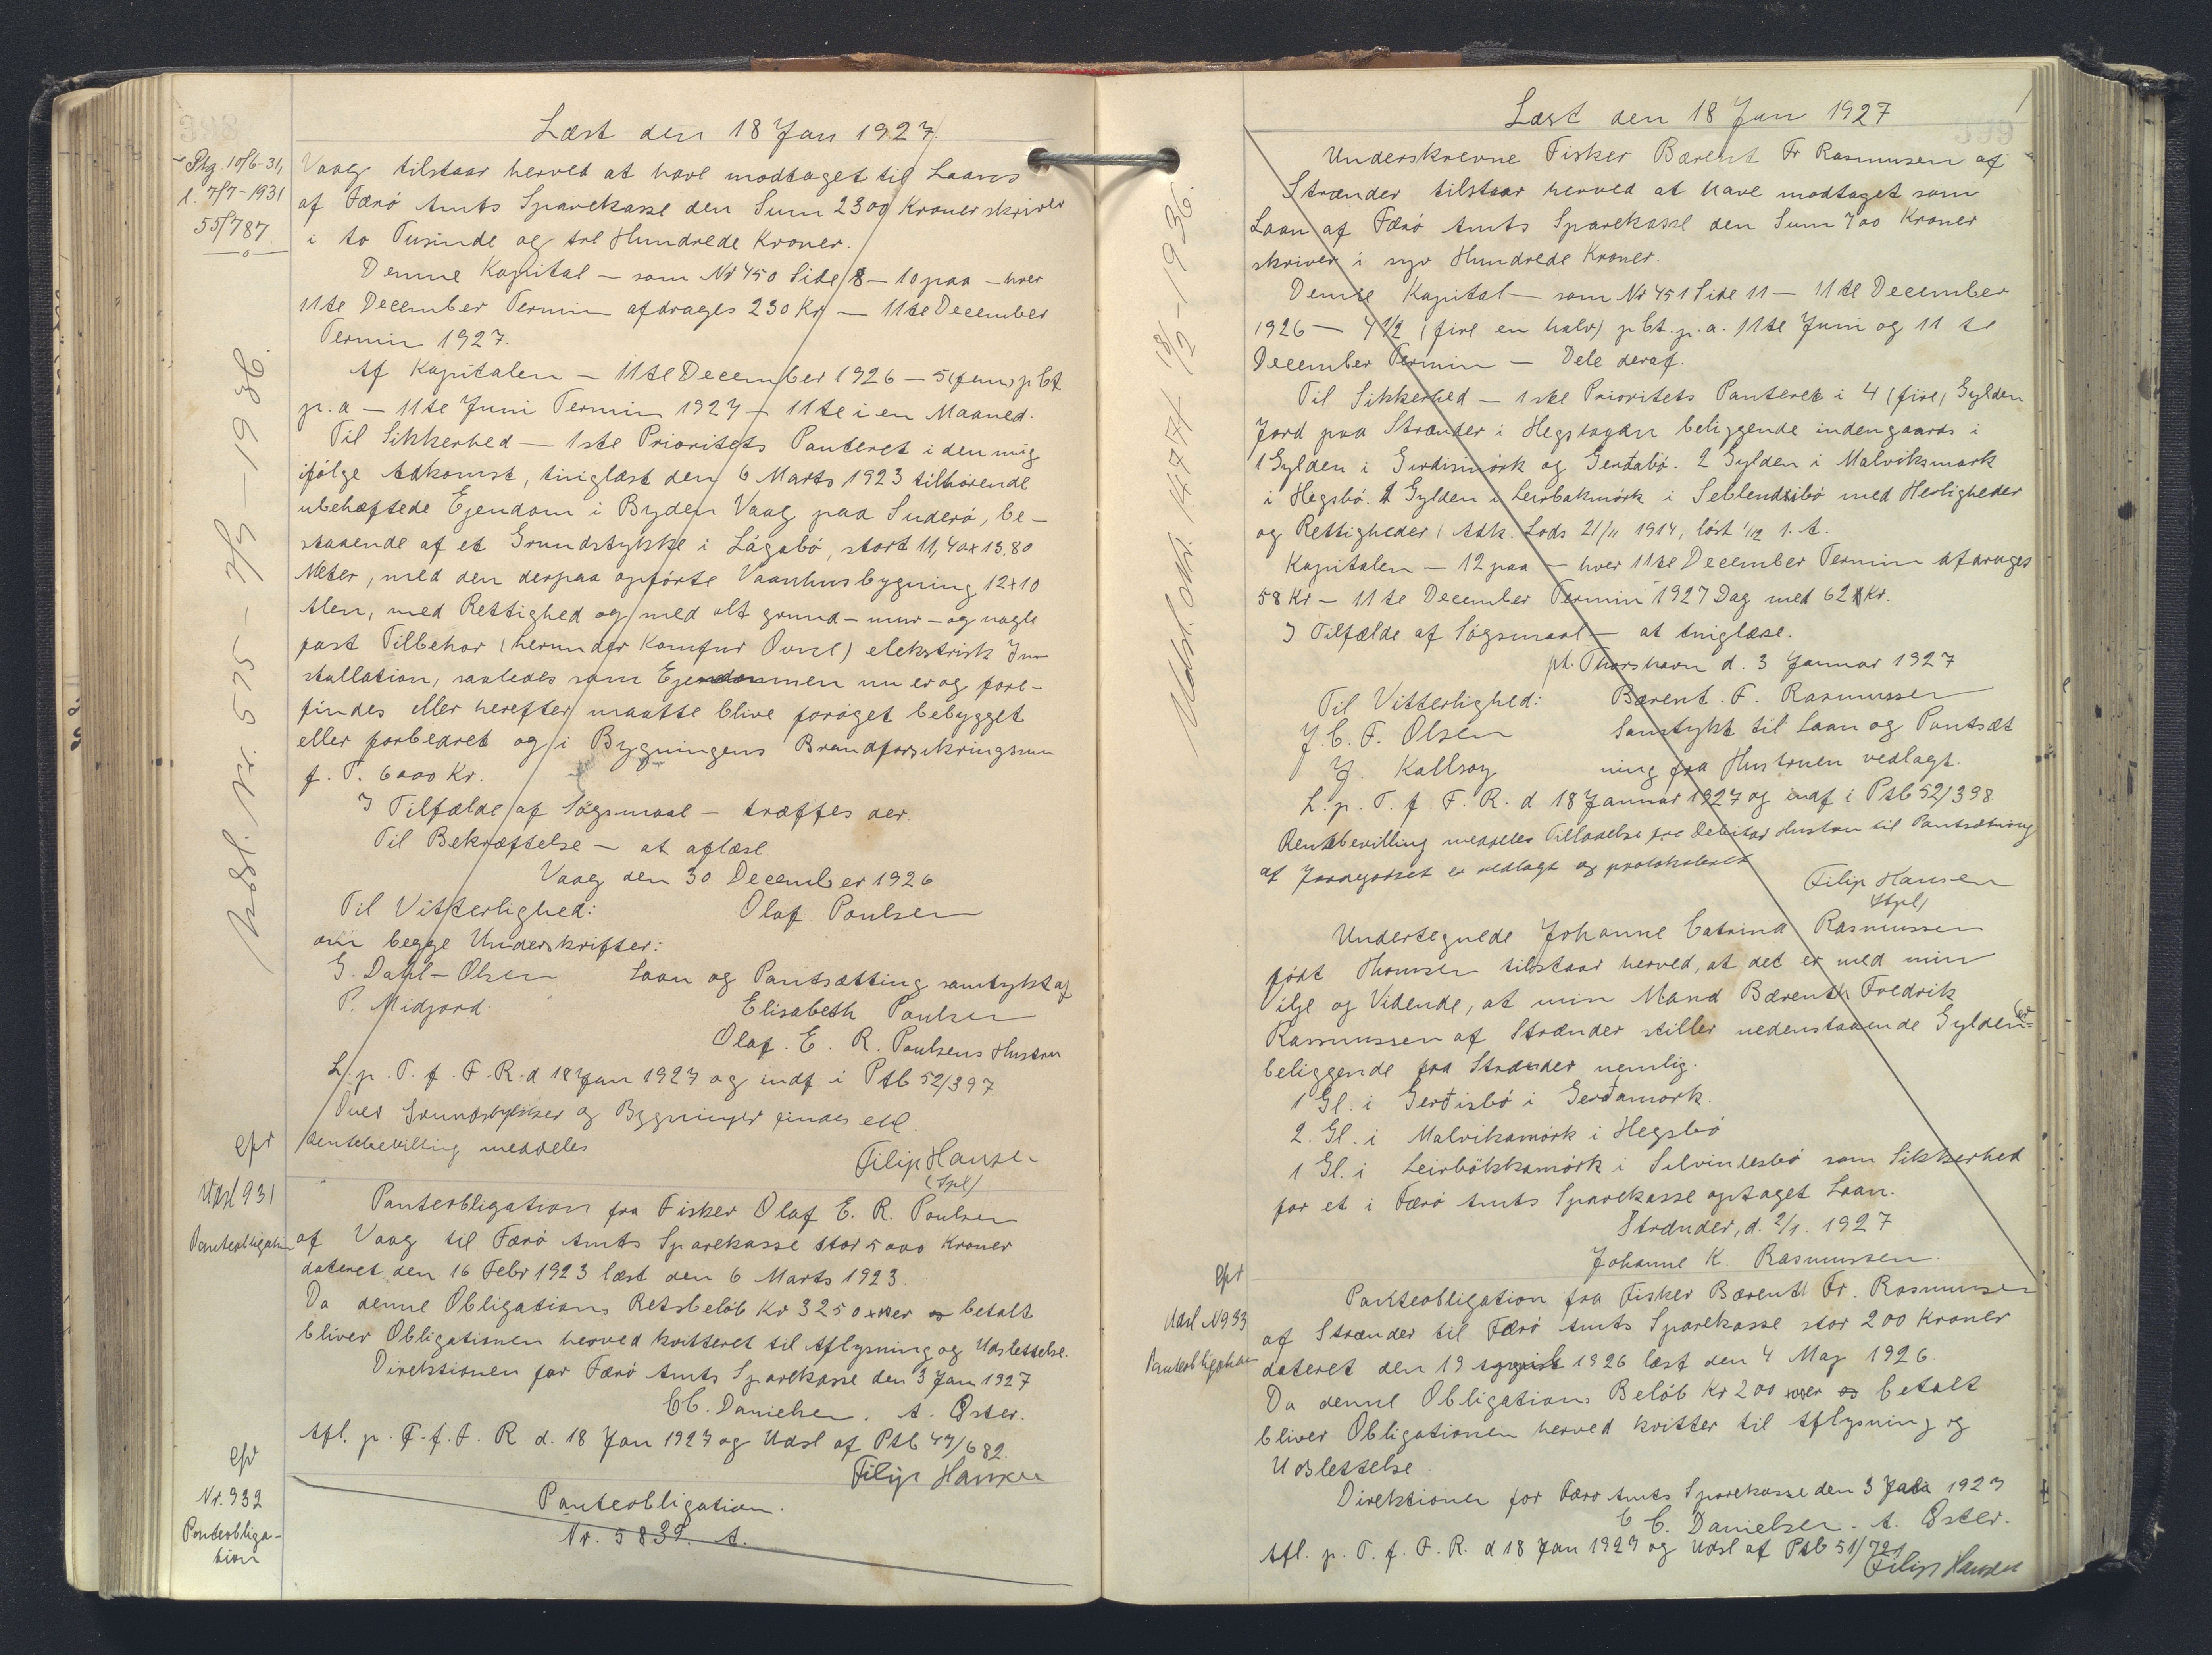 Læst den 18 Jan 1927
Ptg. 10/6-31,
l. 7/7-1931
55/787
Vaag tilstaar herved at have modtaget til Laans
af Færø Amts Sparekasse den Sum 2300 Kroner skriver
i to Tusinde og tre Hundrede Kroner.
Denne Kapital - som Nr 450 Side 8 - 10 paa - hver
11te December Termin afdrages 230 Kr - 11te December
Termin 1927.
Af Kapitalen - 11te December 1926 - 5 (fem) pCt
p.a - 11te Juni Termin 1927 - 11te i en Maaned.
Til Sikkerhed - 1ste Prioritets Panteret i den mig
ifølge Adkomst, tinglæst den 6 Marts 1923 tilhørende
ubehæftede Ejendom i Byden Vaag paa Suderø, be-
staaende af et Grundstykke i Lágabø, stort 11,40 x 13,80
Meter, med den derpaa opførte Vaanhusbygning 12 x 10
Alen, med Rettighed og med alt grund- mur- og nagle
fast Tilbehør (herunder Komfur Ovne) elekstrisk In-
stallation, saaledes som Ejendommen nu er og fore-
findes eller herefter maatte blive forøget bebygget
eller forbedret og i Bygningens Brandforsikringssum
f. T. 6000 Kr.
I Tilfælde af Søgsmaal - træffes der.
Til Bekræftelse - at aflæse
Vaag den 30 December 1926
Til Vitterlighed: Olaf Poulsen
om begge Underskrifter:
G. Dahl-Olsen Laan og Pantsætting samtykt af
P. Midjord. Elisabeth Poulsen
Olaf. E. R. Poulsens Hustru
L. p. T. f. F. R. d 18 Jan 1927 og indf i Ptb 52/397
Over Grundstykker og Bygninger findes ell.
Rentebevilling meddeles
Filip Hansen
(Spl)
Udsl. Nr. 575 - 7/5 - 1936.
Udsl 931
Panteobligation
Panteobligation fra Fisker Olaf E. R. Poulsen
af Vaag til Færø Amts Sparekasse stor 5000 Kroner
dateret den 16 Febr 1923 læst den 6 Marts 1923.
Da denne Obligations Restbeløb Kr 3250 xxx er betalt
bliver Obligationen herved kvitteret til Aflysning og Udslettelse.
Direktionen for Færø Amts Sparekasse den 3 Jan 1927
C C. Danielsen. A. Øster.
Afl. p. T. f. F. R d. 18 Jan 1927 og Udsl af Ptb 47/682.
Filip Hansen
Nr. 932
Panteobliga-
tion
Panteobligation.
Nr. 5839. A.
Læst den 18 Jan 1927
Underskrevne Fisker Bærent Fr Rasmusen af
Strænder tilstaar herved at have modtaget som
Laan af Færø Amts Sparekasse den Sum 700 Kroner
skriver i syv Hundrede Kroner.
Denne Kapital - som Nr 451 Side 11 - 11te December
1926 - 4 1/2 (fire en halv) pCt. p.a. 11te Juni og 11 te
December Termin - Dele deraf.
Til Sikkerhed - 1ste Prioritets Panteret i 4 (fire) Gylden
Jord paa Strænder i Hegstagan beliggende indengaards i
1 Gylden i Gerdismørk og Gerđabø. 2 Gylden i Malviksmørk
i Hegsbø. 1 Gylden i Leirbakmørk i Seblendsibø med Herligheder
og Rettigheder (Adk. Lods 21/11 1914, løst 1/12 1. A.
Kapitalen - 12 paa - hver 11te December Termin afdrages
58 Kr - 11te December Termin 1927 Dag med 62 Kr.
I Tilfælde af Søgsmaal - at tinglæse.
pt. Thorshavn d. 3 Januar 1927
Til Vitterlighed: Bærent. F. Rasmussen
J. C. F. Olsen Samtykt til Laan og Pantsæt
J. Kallsoy ning fra Hustruen vedlagt.
L. p. T. f. F. R. d 18 Januar 1927 og indf i Ptb 52/398
Rentebevilling meddeles Tilladelse fra Debitors Hustru til Pantsætning
af Jordegodset er vedlagt og protokoleret
Filip Hansen
(Spl)
Undertegnede Johanne Catrina Rasmussen
født Thomsen tilstaar herved, at det er med min
Vilje og Vidende, at min Mand Bærenth Fredrik
Rasmussen af Strænder stiller nedenstaaende Gylden-er
beliggende fra Strænder nemlig.
1 Gl. i Gerđisbø i Gerđamørk.
2. Gl. i Malviksmørk i Hegsbø
1 Gl. i Leirbökkamørk i Silvindesbø som Sikkerhed
for et i Færø Amts Sparekasse optaget Laan.
Strænder, d. 2/1. 1927
Johanne K. Rasmussen.
Udsl N933
Panteobligation
Panteobligation fra Fisker Bærent Fr. Rasmussen
af Strænder til Færø Amts Sparekasse stor 200 Kroner
dateret den 19 April 1926 læst den 4 Maj 1926.
Da denne Obligations Beløb Kr 200 xxx er betalt
bliver Obligationen herved kvitter til Aflysning og
Udslettelse.
Direktionen for Færø Amts Sparekasse den 3 1927
C C. Danielsen. A. Øster.
Afl. p. T. f. F. R. d 18 Jan 1927 og Udsl af Ptb 51/721
Filip Hansen